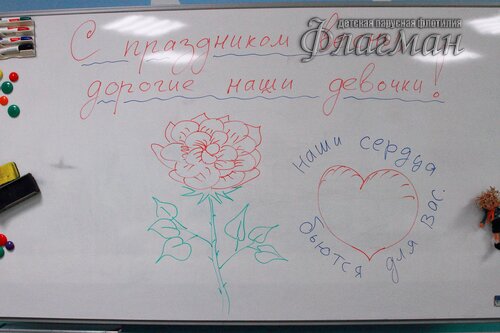 детская парусная флотилия
Флагман
С праздником
дорогие наши девочки!
наши сердца
бьются для Вас